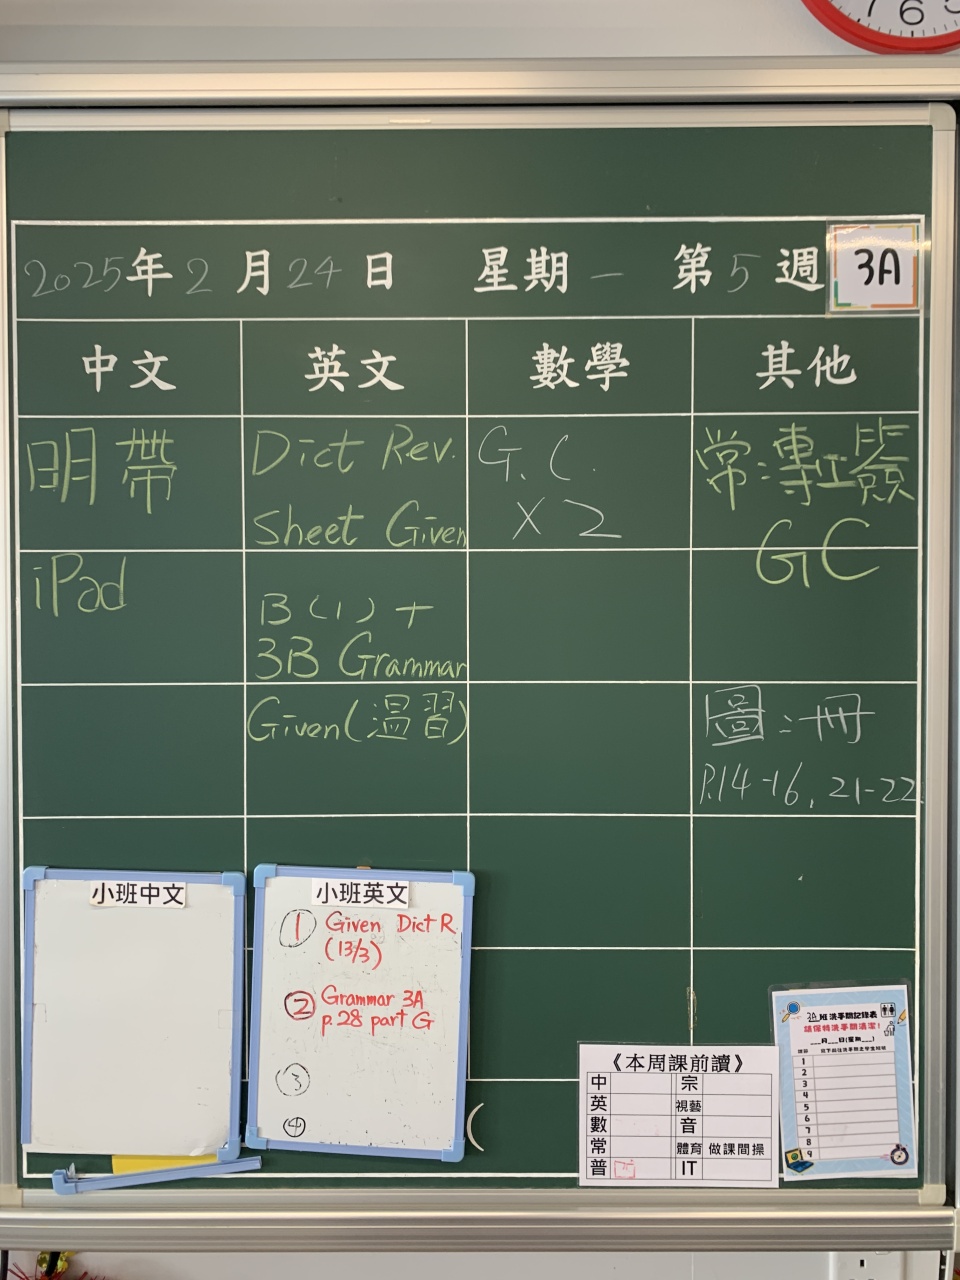 7 6 5
2025年2月24日 星期一 第5週 3A
中文 英文 數學 其他
明帶
iPad
Dict Rev.
Sheet Given
B(1)+
3B Grammar
Given(温習)
G.C.
X2
GC
圖:冊
P.14-16, 21-22
小班中文
小班英文
① Given Dict R
(13/3)
② Grammar 3A
p.28 part G
③
④
(
《本周課前讀》
中 宗
英 視藝
數 音
常 體育 做課間操
普 IT
3A班洗手間記錄表
請保持洗手間清潔!
___月___日(星期___)
1
2
3
4
5
6
7
8
9